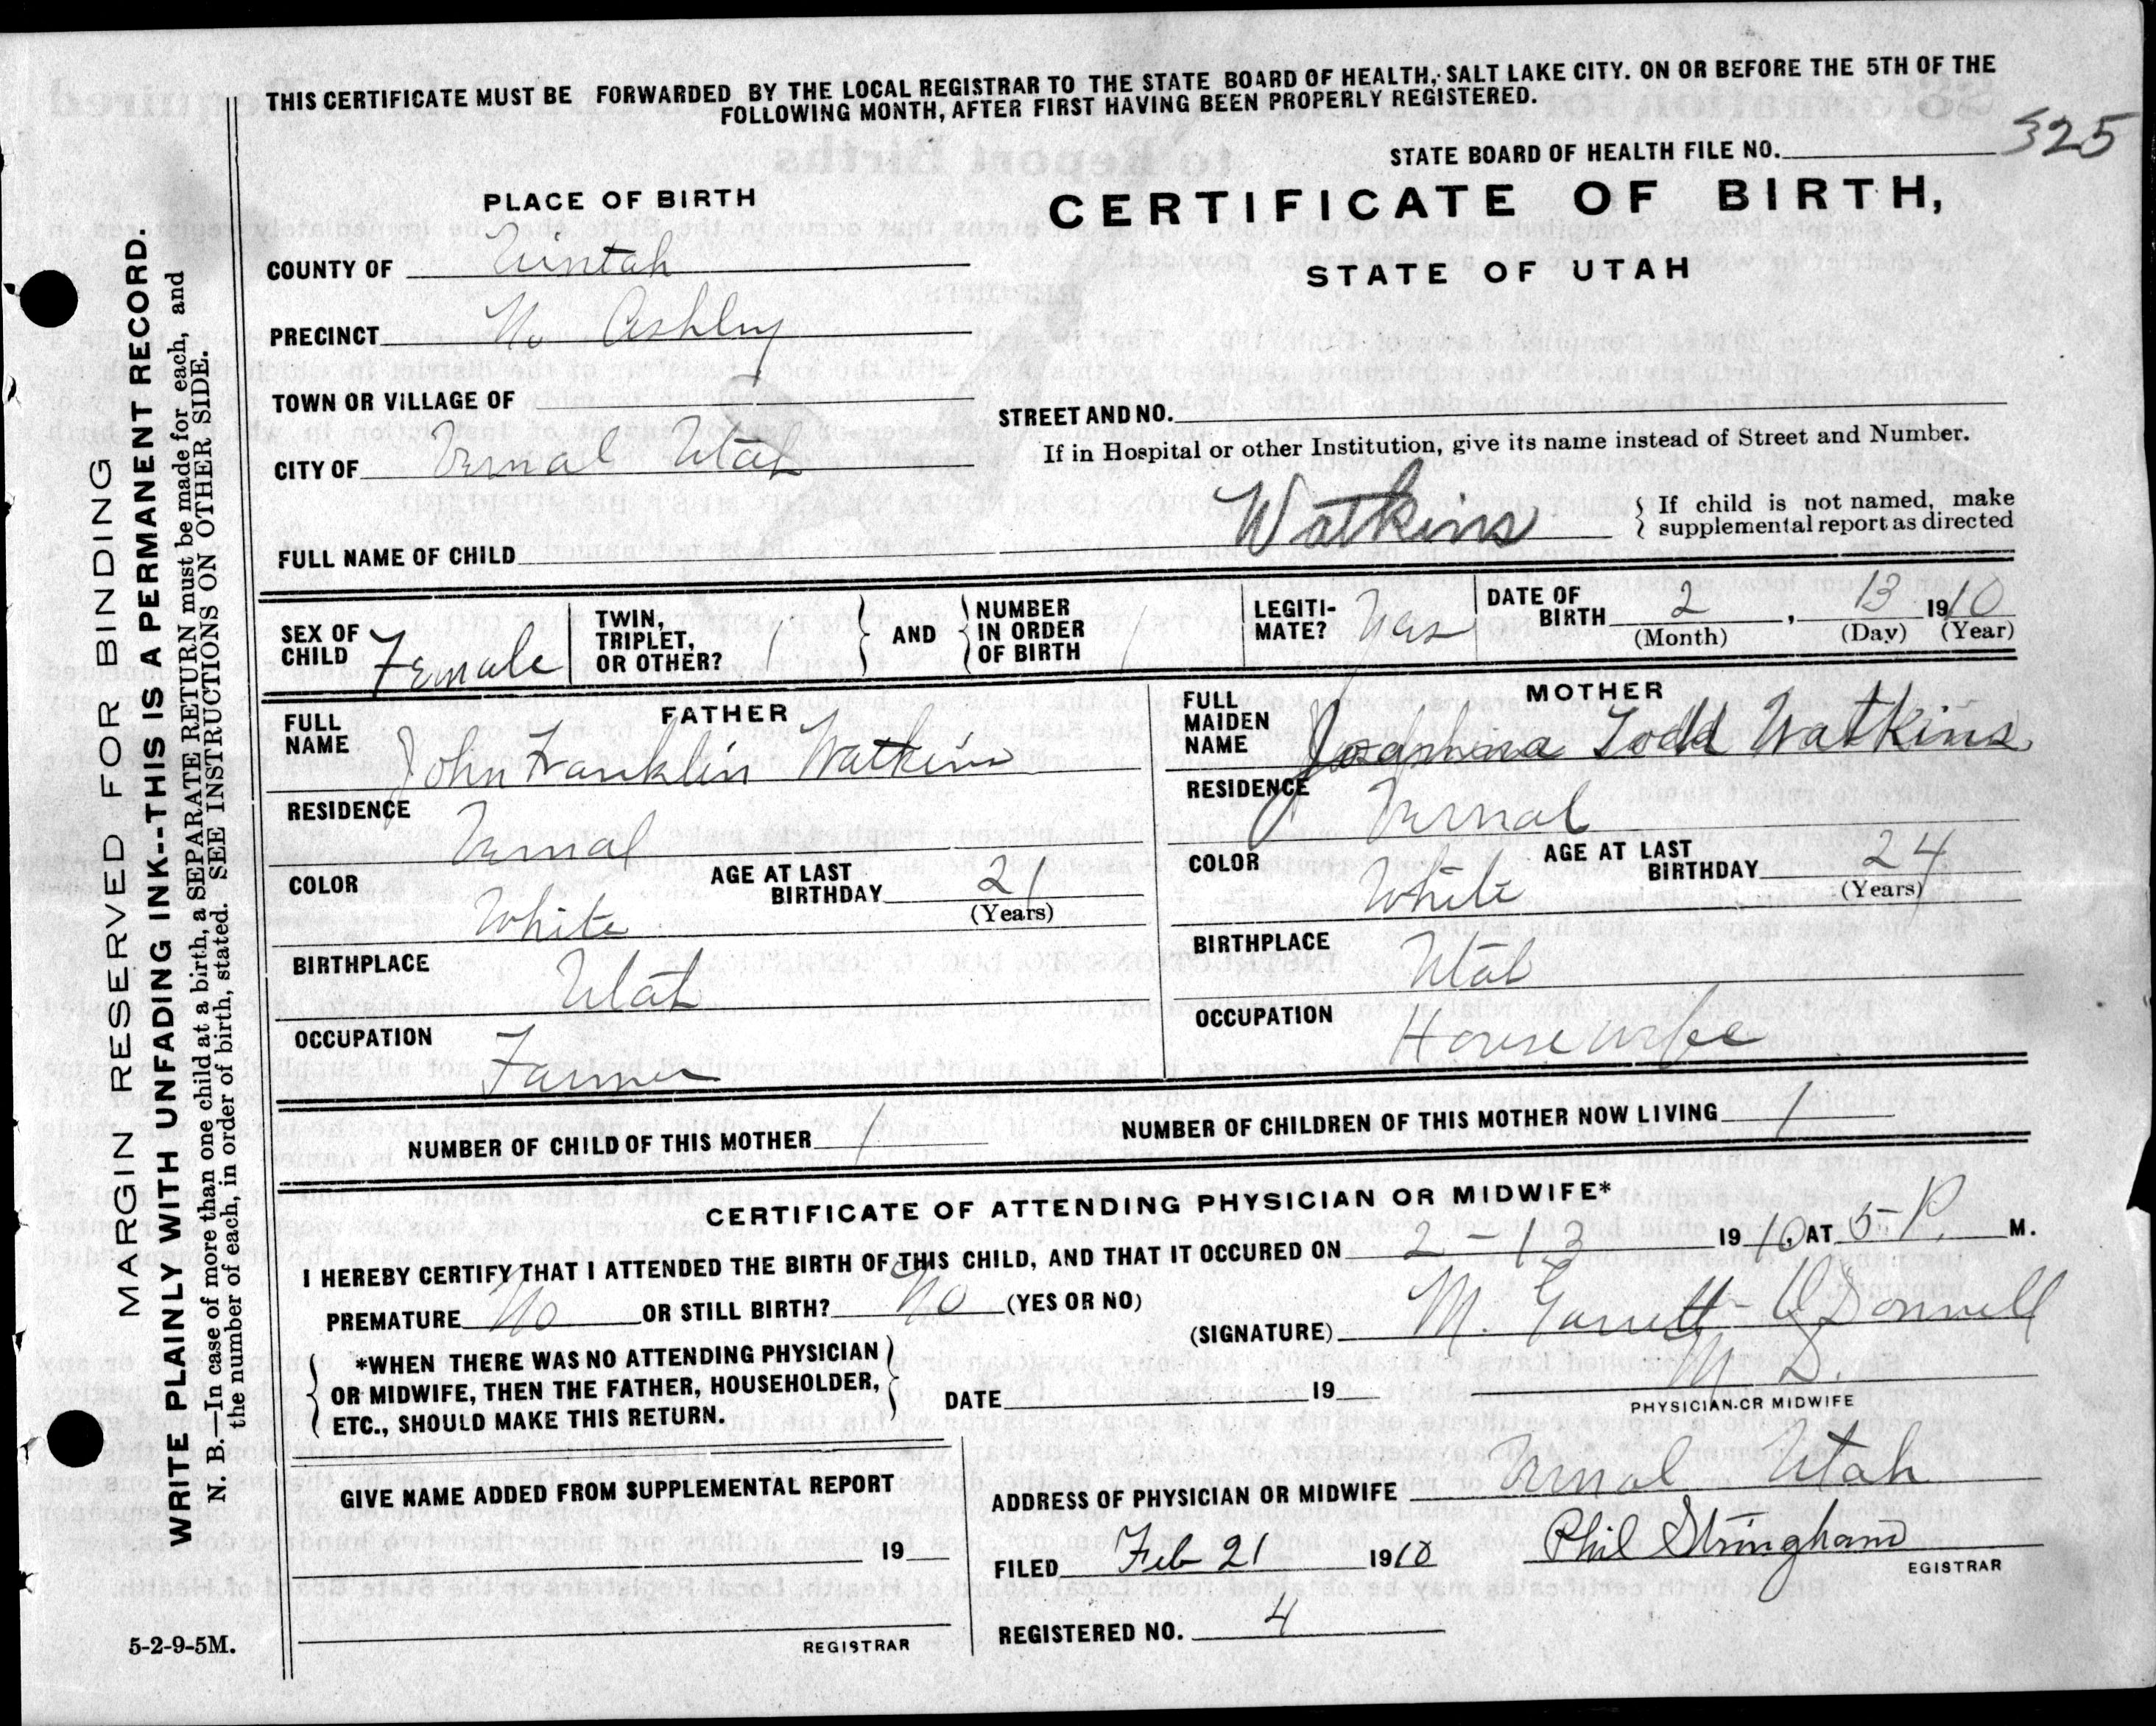 THIS CERTIFICATE MUST BE FORWARDED BY THE LOCAL REGISTRAR TO THE STATE BOARD OF HEALTH, SALT LAKE CITY. ON OR BEFORE THE 5TH OF THE
FOLLOWING MONTH, AFTER FIRST HAVING BEEN PROPERLY REGISTERED.
STATE BOARD OF HEALTH FILE NO. 325
PLACE OF BIRTH
CERTIFICATE OF BIRTH,
STATE OF UTAH
COUNTY OF Uintah
PRECINCT No Ashley
TOWN OR VILLAGE OF
STREET AND NO.
If in Hospital or other Institution, give its name instead of Street and Number.
CITY OF Vernal Utah
FULL NAME OF CHILD Watkins
If child is not named, make
supplemental report as directed
SEX OF CHILD Female
TWIN, TRIPLET, OR OTHER? 1
AND
NUMBER IN ORDER OF BIRTH 1
LEGITI-MATE?
DATE OF BIRTH 2, 13 1910
(Month) (Day) (Year)
FATHER
FULL NAME John Franklin Watkins
RESIDENCE Vernal
COLOR White
AGE AT LAST BIRTHDAY 21
(Years)
BIRTHPLACE Utah
OCCUPATION Farmer
MOTHER
FULL MAIDEN NAME Todd Watkins
RESIDENCE Vernal
COLOR White
AGE AT LAST BIRTHDAY 24
(Years)
BIRTHPLACE Utah
OCCUPATION Housewife
NUMBER OF CHILD OF THIS MOTHER 1
NUMBER OF CHILDREN OF THIS MOTHER NOW LIVING 1
CERTIFICATE OF ATTENDING PHYSICIAN OR MIDWIFE*
I HEREBY CERTIFY THAT I ATTENDED THE BIRTH OF THIS CHILD, AND THAT IT OCCURED ON 2-13 1910, AT 5- P. M.
PREMATURE No OR STILL BIRTH? No (YES OR NO)
(SIGNATURE) M. Garrett O'Donnell
M D.
PHYSICIAN OR MIDWIFE
*WHEN THERE WAS NO ATTENDING PHYSICIAN
OR MIDWIFE, THEN THE FATHER, HOUSEHOLDER,
ETC., SHOULD MAKE THIS RETURN.
DATE 19
GIVE NAME ADDED FROM SUPPLEMENTAL REPORT
19
REGISTRAR
ADDRESS OF PHYSICIAN OR MIDWIFE Vernal Utah
FILED Feb 21 1910 Phil Stringham
EGISTRAR
REGISTERED NO. 4
5-2-9-5M.
MARGIN RESERVED FOR BINDING
WRITE PLAINLY WITH UNFADING INK--THIS IS A PERMANENT RECORD.
N. B.—In case of more than one child at a birth, a SEPARATE RETURN must be made for each, and
the number of each, in order of birth, stated. SEE INSTRUCTIONS ON OTHER SIDE.